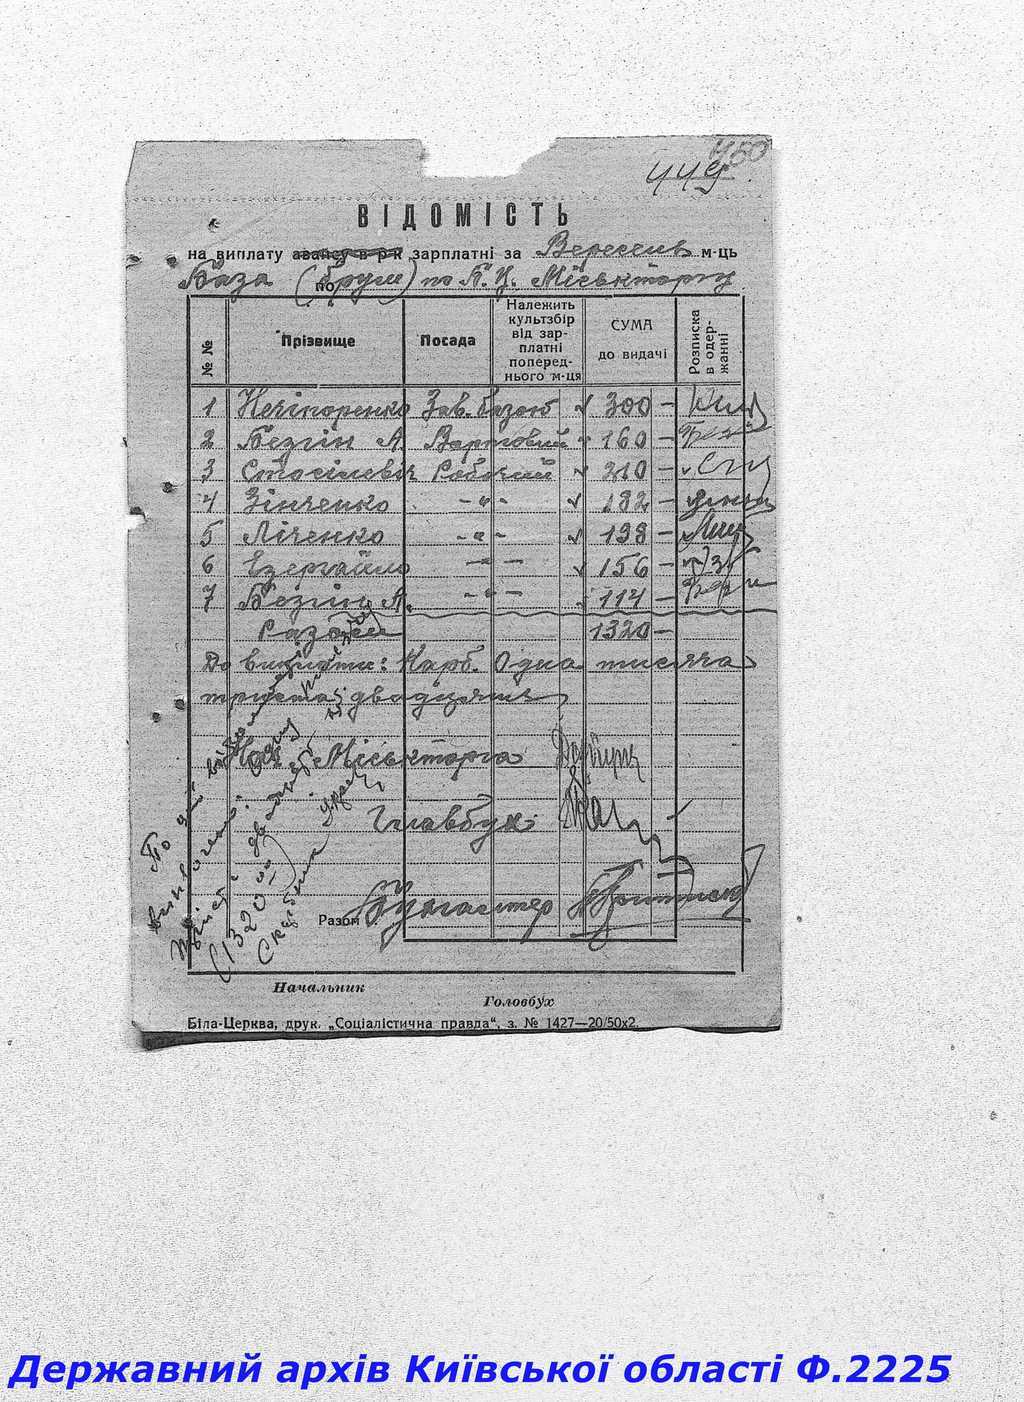 450
449
ВІДОМІСТЬ
на виплату авансу в р-к зарплатні за Вересень м-ць
База (брухт) по Б.Ц. Міськторгу
по
№ № Прізвище Посада Належить культзбір від зар-платні поперед-нього м-ця СУМА до видачі Розписка в одер-жанні
1 Нечіпоренко Зав. базою 300 –
2 Безгін А. Вартовий 160 –
3 Стасілевіч Робочий 210 –
4 Зінченко – " – 182 –
5 Ліченко – " – 198 –
6 – " – 156 –
7 Безгін А. – " – 114 –
Разом 1320 –
До виплати: Карб. Одна тисяча
триста двадцять
Нач. Міськторга
Главбух
Разом Бухгалтер
По цій відомості
виплочено: одну
двадцять
(1320)
Скарбник
Начальник
Головбух
Біла-Церква, друк. „Соціалістична правда“, з. № 1427—20/50х2.
Державний архів Київської області Ф.2225